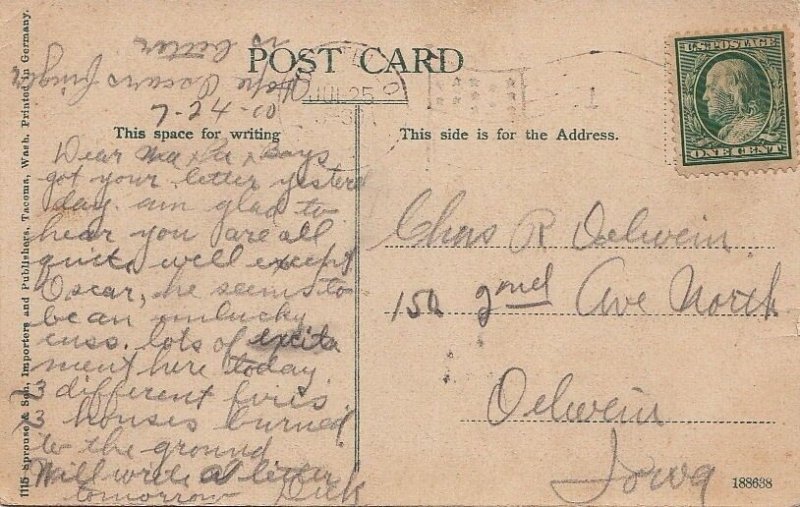 POST CARD
Hope Oscars finger
is better
JUL 25
7-24-10
This space for writing
This side is for the Address.
U.S. POSTAGE
ONE CENT
Dear Ma, Pa, Boys
got your letter yester
day. am glad to
hear you are all
quite well except
Oscar, he seems to
be an unlucky
cuss. lots of excite
ment here today
3 different fires
3 houses burned
to the ground
Will write a letter
tomorrow Dick
Chas R Oelwein
150 2nd Ave North
Oelwein
Iowa
188638
1115 Sprouse & Son, Importers and Publishers, Tacoma, Wash. Printed in Germany.